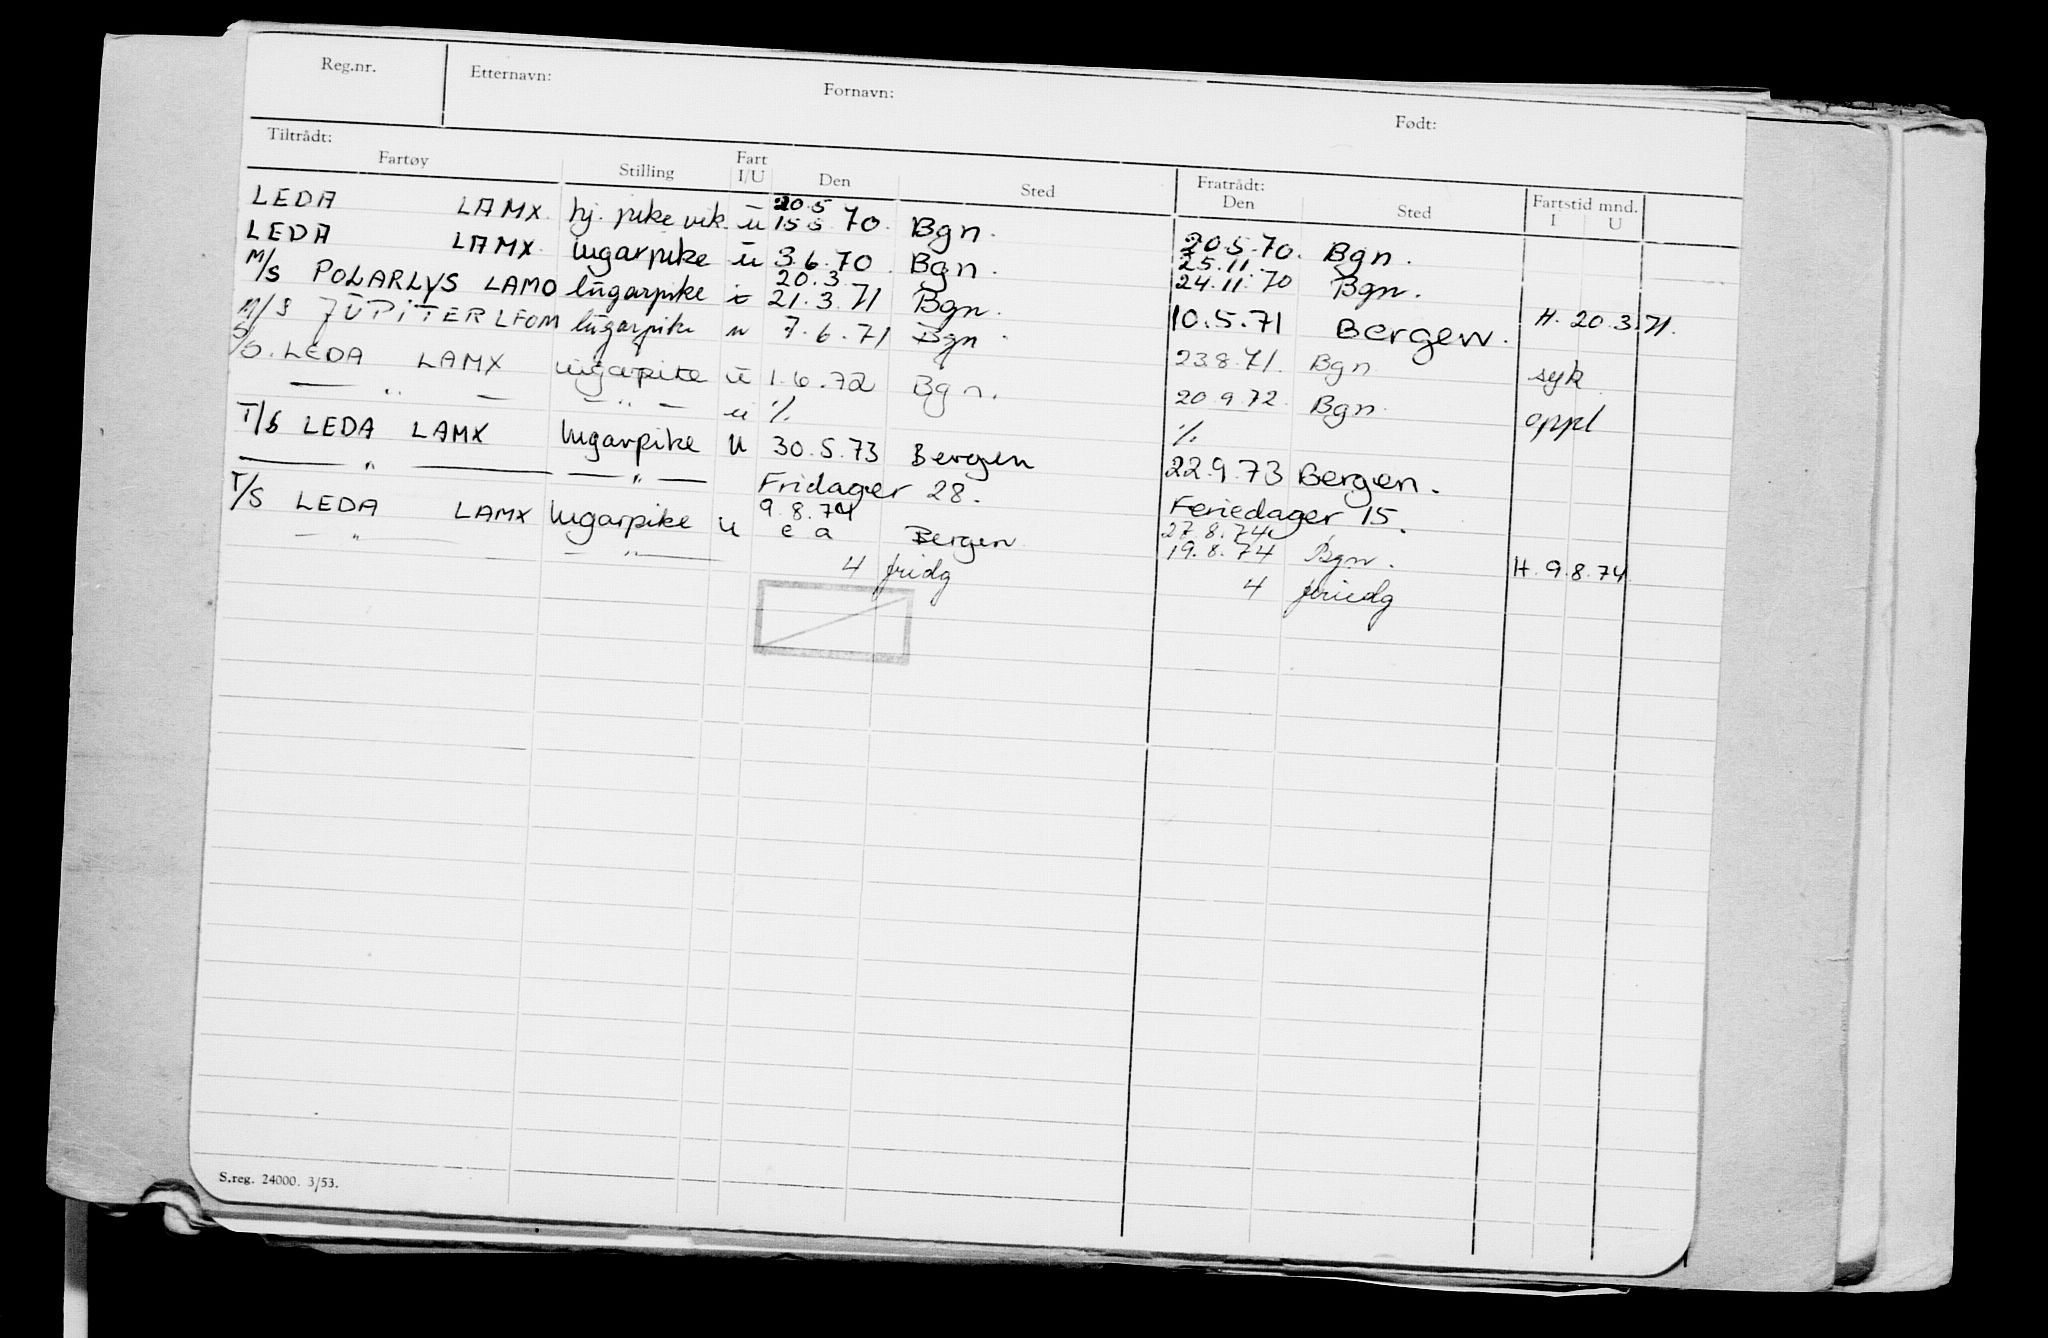 Reg.nr. Etternavn: Fornavn: Født:
Tiltrådt: Fratrådt:
Fartøy Stilling Fart I/U Den Sted Den Sted Fartstid mnd. I U
20.5
LEDA LAMX. hj. pike vik. u 15 5 70. Bgn. 20.5.70. Bgn.
25.11.
LEDA LAMX. lugarpike u 3.6.70. Bgn. 24.11.70 Bgn.
20.3
M/S POLARLYS LAMO lugarpike i 21.3.71 Bgn. 10.5.71 Bergen. H. 20.3.71.
M/S JUPITER LFOM lugarpike u 7.6.71 Bgn. 23.8.71. Bgn syk
S/S. LEDA LAMX lugarpike u 1.6.72 Bgn. 20.9.72. Bgn. oppl
— " — — " — u % %
T/S LEDA LAMX lugarpike u 30.5.73 Bergen 22.9.73 Bergen.
— " — — " — Fridager 28. Feriedager 15.
9.8.74 27.8.74
T/S LEDA LAMX lugarpike u e a Bergen 19.8.74 Bgn. H. 9.8.74
— " — — " — 4 fridg 4 feriedg
S.reg. 24000. 3/53.